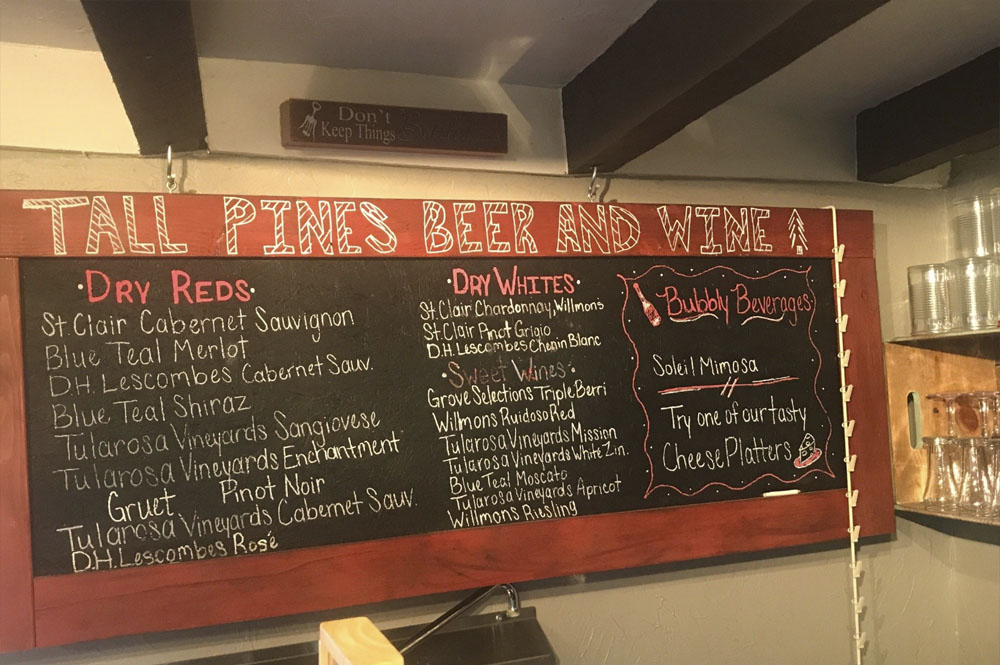 Don't
Keep Things
TALL PINES BEER AND WINE
DRY REDS
St. Clair Cabernet Sauvignon
Blue Teal Merlot
D.H. Lescombes Cabernet Sauv.
Blue Teal Shiraz
Tularosa Vineyards Sangiovese
Tularosa Vineyards Enchantment
Gruet Pinot Noir
Tularosa Vineyards Cabernet Sauv.
D.H. Lescombes Rosé
DRY WHITES
St. Clair Chardonnay, Willmon's
St. Clair Pinot Grigio
D.H. Lescombes Chenin Blanc
Sweet Wines
Grove Selections Triple Berri
Willmons Ruidoso Red
Tularosa Vineyards Mission
Tularosa Vineyards White Zin.
Blue Teal Moscato
Tularosa Vineyards Apricot
Willmons Riesling
Bubbly Beverages
Soleil Mimosa
Try one of our tasty
Cheese Platters